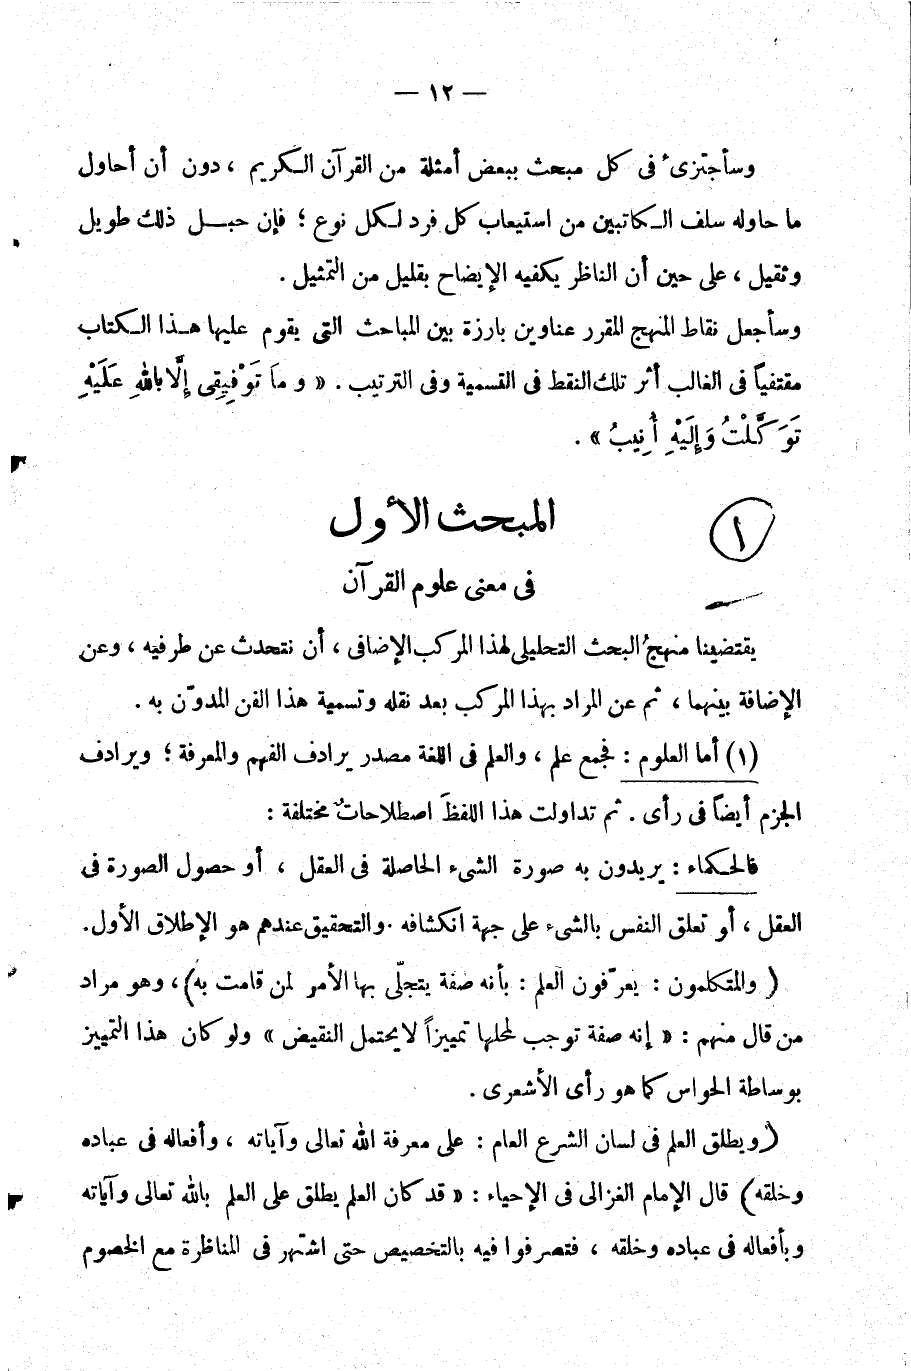 — ١٢ —
وسأجتزىء فى كل مبحث ببعض أمثلة من القرآن الكريم ، دون أن أحاول
ما حاوله سلف الكاتبين من استيعاب كل فرد لكل نوع ؛ فإن حبل ذلك طويل
وثقيل ، على حين أن الناظر يكفيه الإيضاح بقليل من التمثيل .
وسأجعل نقاط المنهج المقرر عناوين بارزة بين المباحث التى يقوم عليها هذا الكتاب
مقتفياً فى الغالب أثر تلك النقط فى التسمية وفى الترتيب . « وَمَا تَوْفِيقِى إِلَّا بِاللهِ عَلَيْهِ
تَوَكَّلْتُ وَإِلَيْهِ أُنِيبُ » .
المبحث الأول
١
فى معنى علوم القرآن
يقتضينا منهجُ البحث التحليلى لهذا المركب الإضافى ، أن نتحدث عن طرفيه ، وعن
الإضافة بينهما ، ثم عن المراد بهذا المركب بعد نقله وتسمية هذا الفن المدوّن به .
(١) أما العلوم : فجمع علم ، والعلم فى اللغة مصدر يرادف الفهم والمعرفة ؛ ويرادف
الجزم أيضاً فى رأى . ثم تداولت هذا اللفظَ اصطلاحاتٌ مختلفة :
فالحكماء : يريدون به صورة الشىء الحاصلة فى العقل ، أو حصول الصورة فى
العقل ، أو تعلق النفس بالشىء على جهة انكشافه . والتحقيق عندهم هو الإطلاق الأول.
( والمتكلمون : يعرّفون العلم : بأنه صفة يتجلّى بها الأمر لمن قامت به)، وهو مراد
من قال منهم : « إنه صفة توجب لمحلها تمييزاً لا يحتمل النقيض » ولو كان هذا التمييز
بوساطة الحواس كما هو رأى الأشعرى .
(ويطلق العلم فى لسان الشرع العام : على معرفة الله تعالى وآياته ، وأفعاله فى عباده
وخلقه) قال الإمام الغزالى فى الإحياء : « قد كان العلم يطلق على العلم بالله تعالى وآياته
وبأفعاله فى عباده وخلقه ، فتصرفوا فيه بالتخصيص حتى اشتهر فى المناظرة مع الخصوم